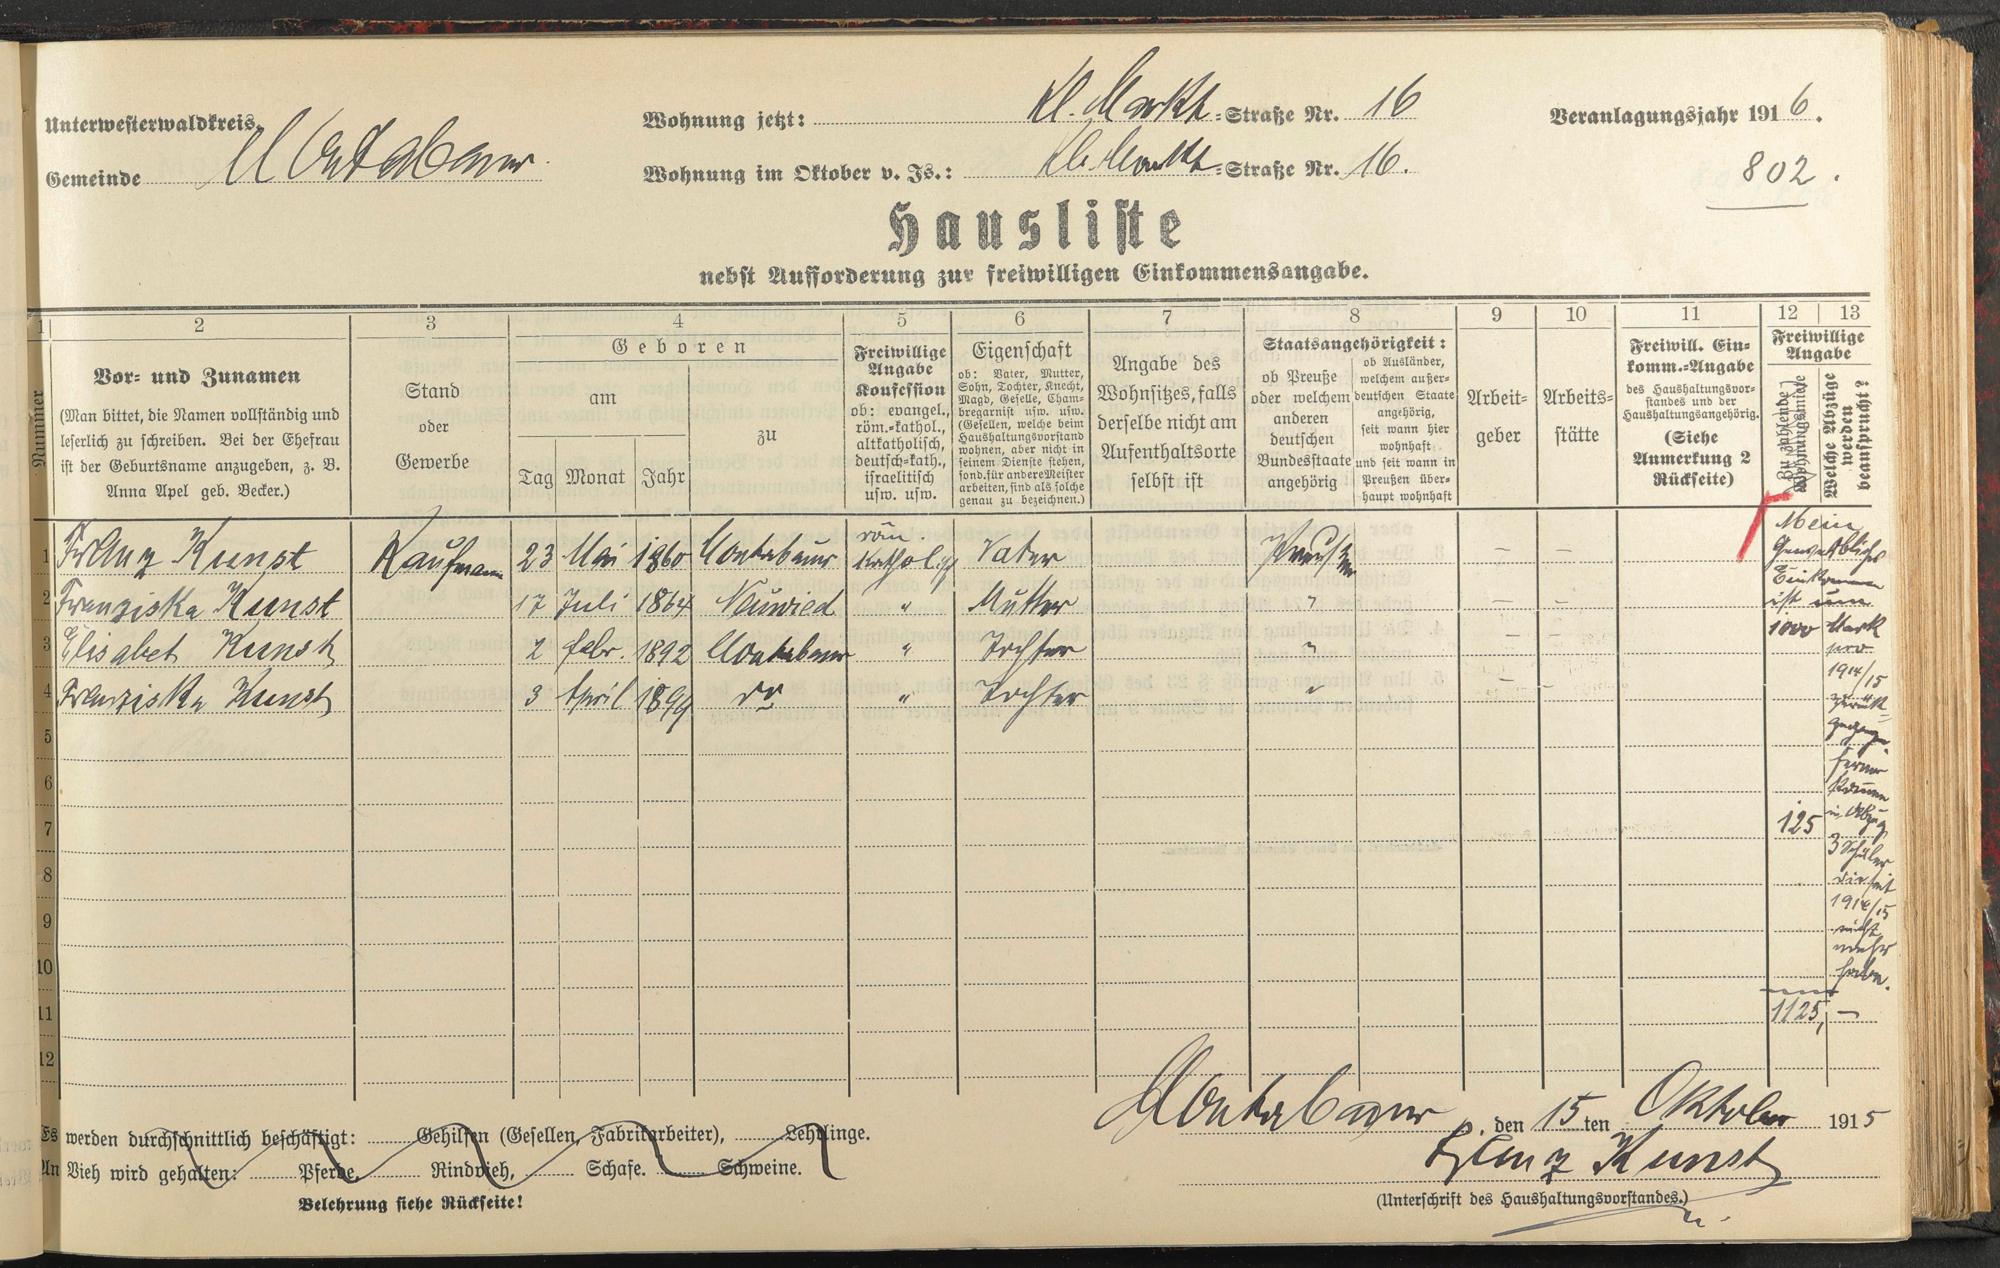 Unterwesterwaldkreis.
Gemeinde Montabaur.
Wohnung jetzt: Kl. Markt=Straße Nr. 16
Wohnung im Oktober v. Js.: Kl. Markt=Straße Nr. 16.
Veranlagungsjahr 1916.
802.
Hausliste
nebst Aufforderung zur freiwilligen Einkommensangabe.
1 2 3 4 5 6 7 8 9 10 11 12 13
Nummer
Vor- und Zunamen
(Man bittet, die Namen vollständig und
leserlich zu schreiben. Bei der Ehefrau
ist der Geburtsname anzugeben, z. B.
Anna Apel geb. Becker.)
Stand
oder
Gewerbe
Geboren
am
Tag Monat Jahr
zu
Freiwillige
Angabe
Konfession
ob: evangel.,
röm.=kathol.,
altkatholisch,
deutsch=kath.,
israelitisch
usw. usw.
Eigenschaft
ob: Vater, Mutter,
Sohn, Tochter, Knecht,
Magd, Geselle, Cham-
bregarnist usw. usw.
(Gesellen, welche beim
Haushaltungsvorstand
wohnen, aber nicht in
seinem Dienste stehen,
sond. für andere Meister
arbeiten, sind als solche
genau zu bezeichnen.)
Angabe des
Wohnsitzes, falls
derselbe nicht am
Aufenthaltsorte
selbst ist
Staatsangehörigkeit:
ob Preuße
oder welchem
anderen
deutschen
Bundesstaate
angehörig
ob Ausländer,
welchem außer-
deutschen Staate
angehörig,
seit wann hier
wohnhaft
und seit wann in
Preußen über-
haupt wohnhaft
Arbeit-
geber
Arbeits-
stätte
Freiwill. Ein-
komm.=Angabe
des Haushaltungsvor-
standes und der
Haushaltungsangehörig.
(Siehe
Anmerkung 2
Rückseite)
Freiwillige
Angabe
Zu zahlende
Wohnungsmiete
Welche Abzüge
werden
beansprucht?
1 Franz Kunst Kaufmann 23 Mai 1860 Montabaur röm. katholisch Vater Preußen – –
2 Franziska Kunst 17 Juli 1864 Neuwied " Mutter " – –
3 Elisabet Kunst 2 Febr. 1892 Montabaur " Tochter " – –
4 Franziska Kunst 3 April 1899 do " Tochter " – –
5
6
7
8
9
10
11
12
Mein
gewerbliches
Einkommen
ist um
1000 Mark
pro
1914/15
zurück=
gegange.
Ferner
kommen
in Abzug
125
3 Schüler
die seit
1914/15
nicht
mehr
habe.
1125,–
Es werden durchschnittlich beschäftigt: Gehilfen (Gesellen, Fabrikarbeiter), Lehrlinge.
An Vieh wird gehalten: Pferde, Rindvieh, Schafe. Schweine.
Belehrung siehe Rückseite!
Montabaur, den 15ten Oktober 1915
Franz Kunst
(Unterschrift des Haushaltungsvorstandes.)